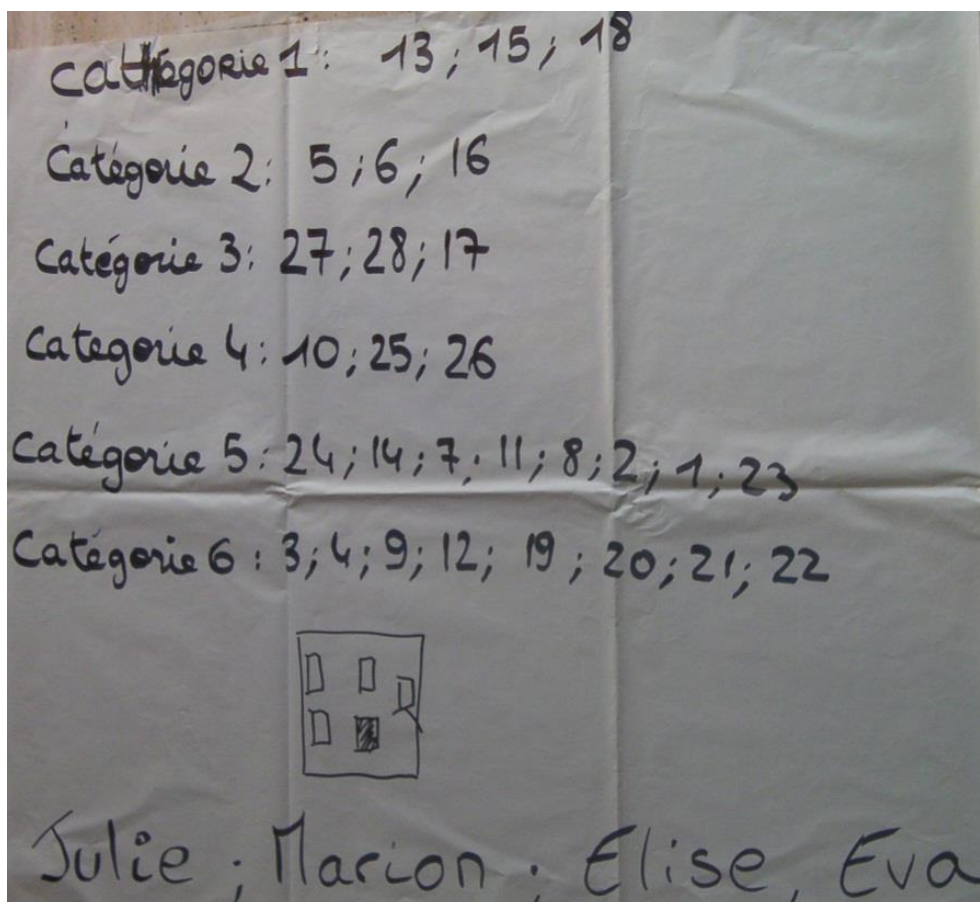 Catégorie 1: 13; 15; 18
Catégorie 2: 5; 6; 16
Catégorie 3: 27; 28; 17
Categorie 4: 10; 25; 26
Catégorie 5: 24; 14; 7; 11; 8; 2; 1; 23
Catégorie 6: 3; 4; 9; 12; 19; 20; 21; 22
Julie; Marion; Elise, Eva